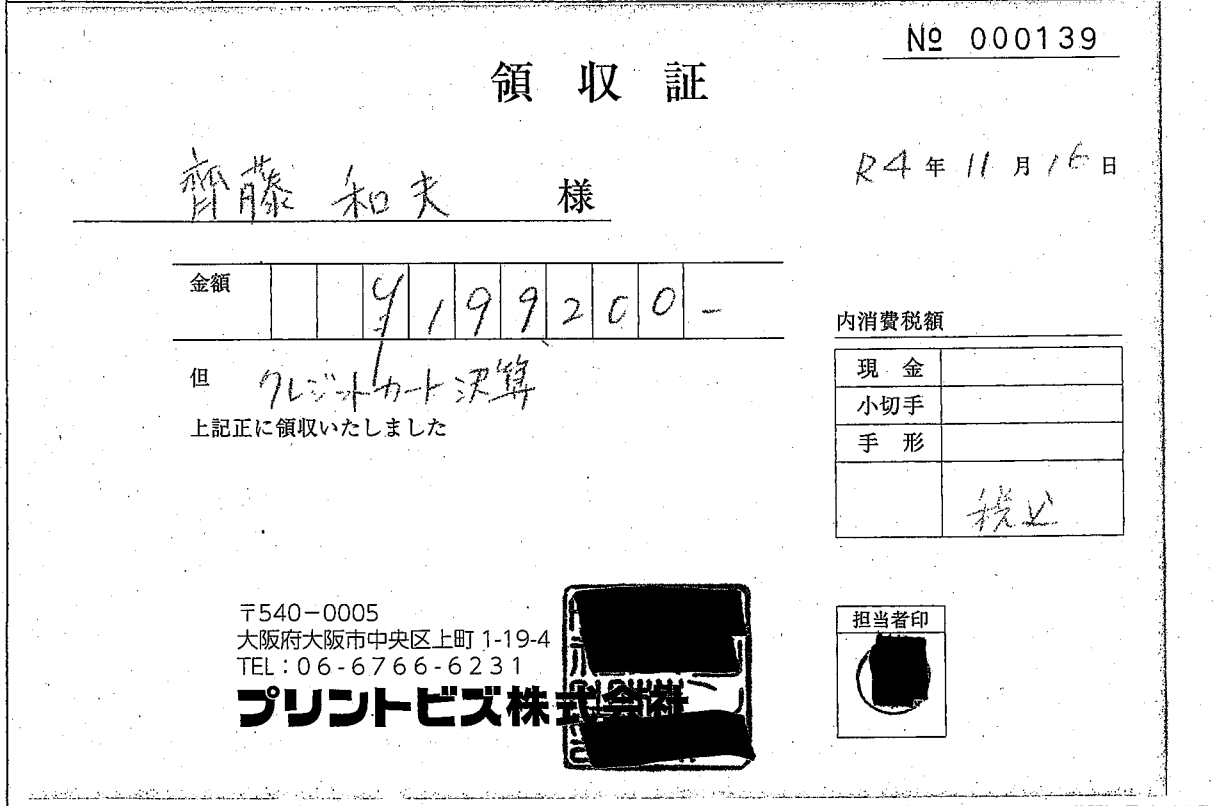 № 000139
領収証
R4年11月16日
齊藤 和夫 様
金額 ¥199200-
内消費税額
但 クレジットカート決算
上記正に領収いたしました
現金
小切手
手形
税込
〒540-0005
大阪府大阪市中央区上町 1-19-4
TEL：06-6766-6231
プリントビズ株式会社
担当者印